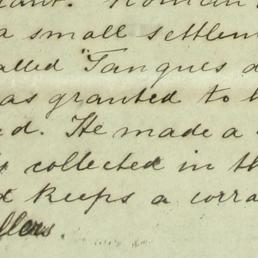 a small settlem
alled "Tanques d
as granted to h
d. He made a
collected in th
keeps a corra
llers.